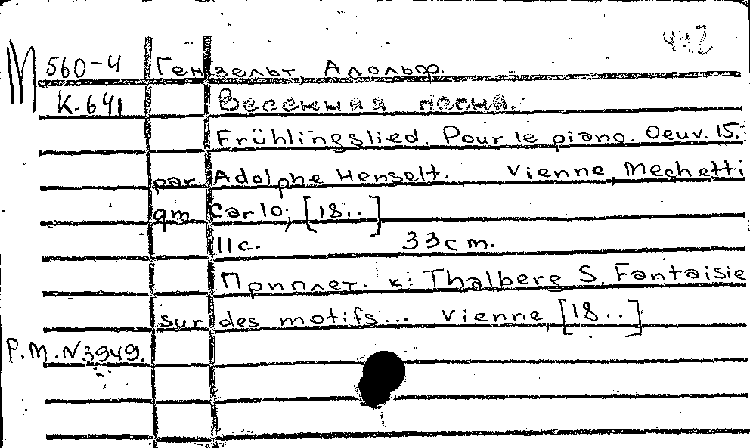 442
М 560-4 Гензельт, Адольф.
К-641 Весенняя песня.
Frühlingslied. Pour le piano. Oeuv. 15.
par Adolphe Henselt. Vienne, Mechetti
qm Carlo, [18..]
11с. 33cm.
Приплет. к: Thalberg S. Fantaisie
sur des motifs... Vienne, [18..]
Р.М.N3949.